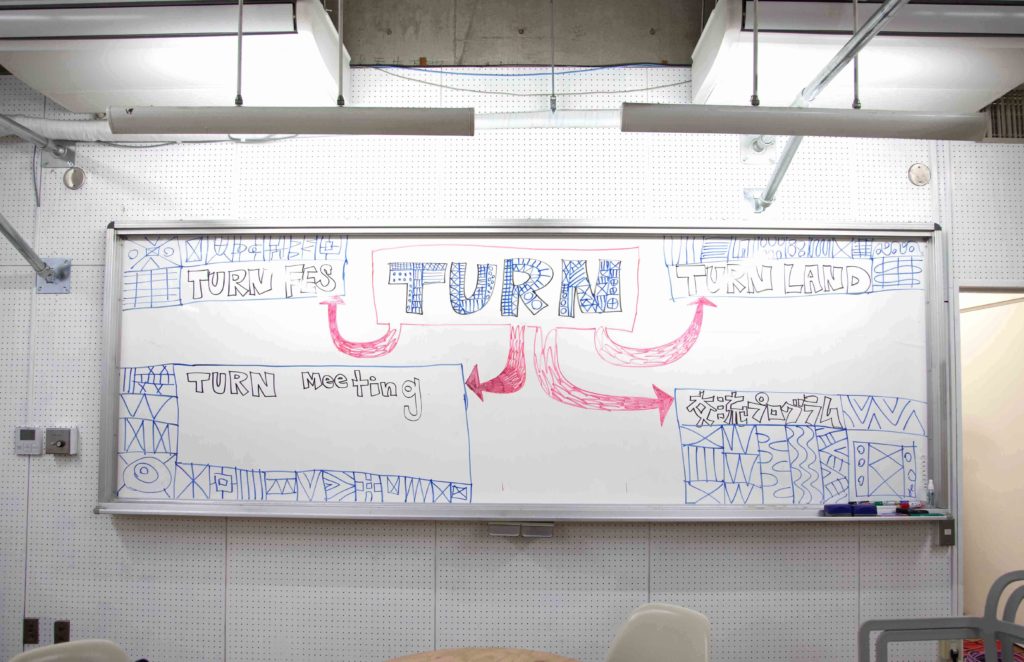 TURN FES
TURN
TURN LAND
TURN Meeting
交流プログラム